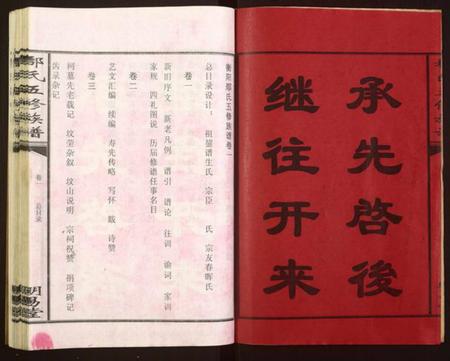 承先啓後
继往开来
衡阳郑氏五修族谱卷一
总目录设计：祖籍谱生氏 宗臣 氏 宗友春晖氏
卷一
新旧序文 新老凡例 谱引 谱论 往训 谕词 家训
家规 四礼图说 历届修谱任事名目
卷二
艺文汇编 续编 寿先传略 写怀 跋 诗赞
卷三
祠墓先老载记 坟茔杂叙 坟山说明 宗祠祝赞 捐项碑记
齿录杂记
郑氏五修族谱
卷一
总目录